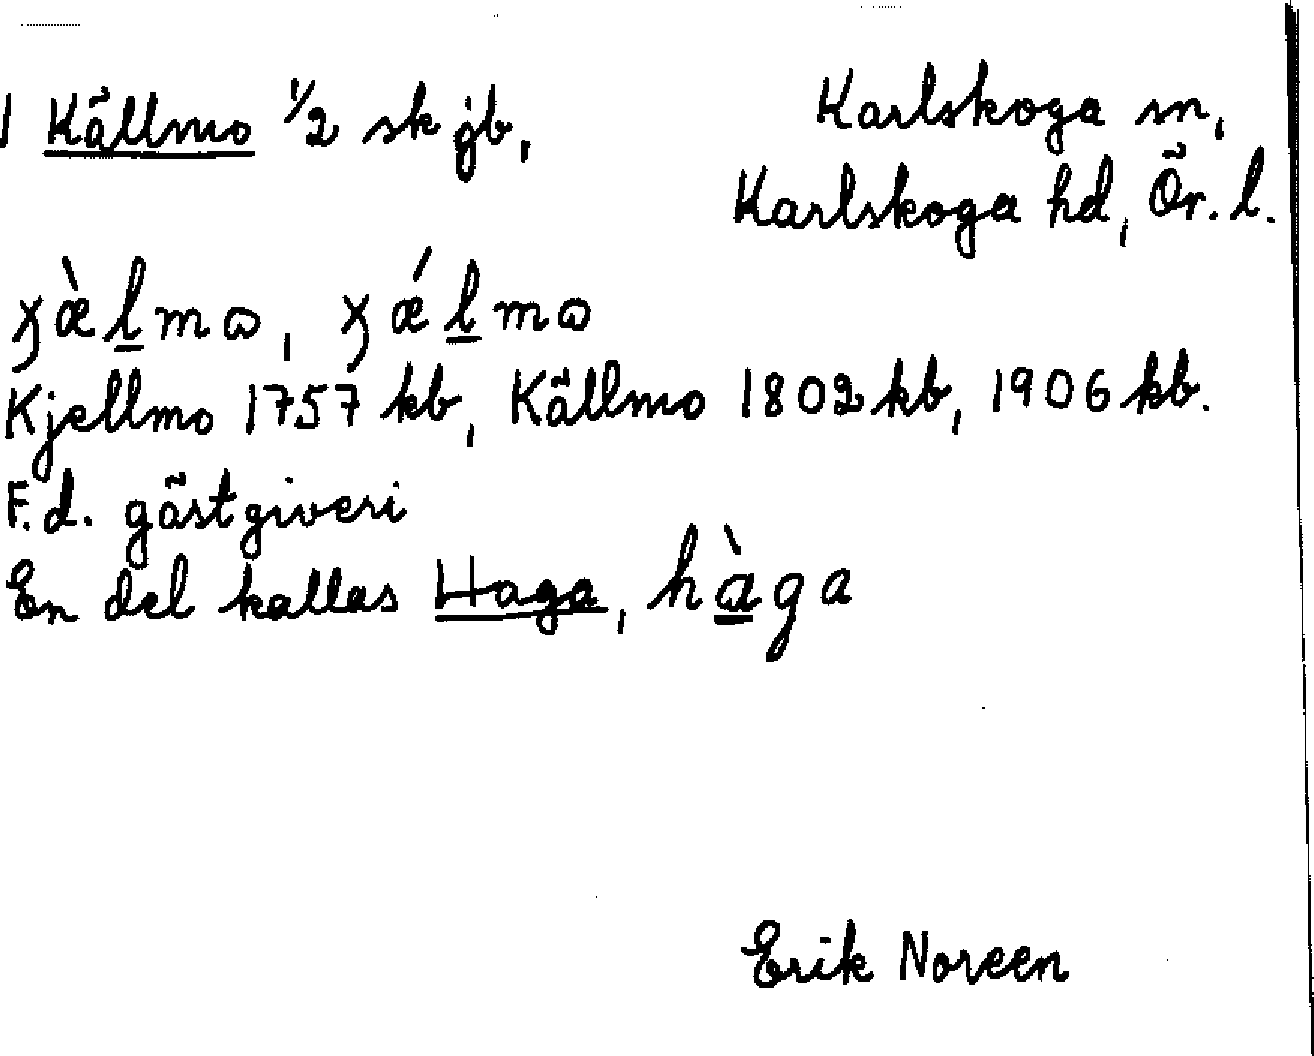 1 Källmo 1/2 sk jb,
Karlskoga sn,
Karlskoga hd, Ör. l.
ɟæ̀l̲mɷ, ɟǽl̲mɷ
Kjellmo 1757 kb, Källmo 1802 kb, 1906 kb.
F.d. gästgiveri
En del kallas Haga, hà̲ga
Erik Noreen